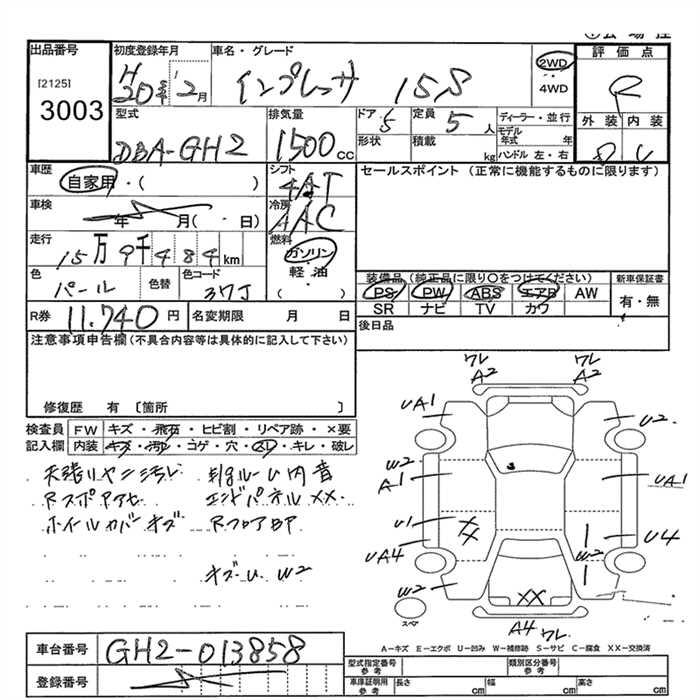 出品番号
[2125]
3003
初度登録年月
H20年 2月
車名・グレード
インプレッサ 15S
2WD
4WD
評価点
R
外装 内装
型式
DBA-GH2
排気量
1500 cc
ドア 5
形状
定員 5 人
積載 kg
ディーラー・並行
モデル年式 年
ハンドル 左・右
車歴
自家用・( )
シフト
4AT
セールスポイント (正常に機能するものに限ります)
車検
年 月( 日)
冷房
AAC
走行
15万9千484km
燃料
ガソリン
軽油
( )
色
パール
色替
色コード
37J
装備品 (純正品に限り〇をつけてください)
PS PW ABS エアB AW
SR ナビ TV カワ
新車保証書
有・無
R券 11.740 円
名変期限 月 日
後日品
注意事項申告欄 (不具合内容等は具体的に記入して下さい)
修復歴 有 [箇所 ]
検査員記入欄
FW キズ・飛石・ヒビ割・リペア跡・×要
内装 キズ・汚れ・コゲ・穴・スレ・キレ・破レ
天張リヤニ汚レ
ホイールカバーキズ
エンドパネルXX.
RフロアBP
キズ・U W2
ワレ A2
ワレ A2
UA1
U2
W2
A1
UA1
U1
XX
UA4
U4
W2
W2
XX
スペア
A4 ワレ
A-キズ E-エクボ U-凹み W-補修跡 S-サビ C-腐食 XX-交換済
車台番号
GH2-013858
登録番号
型式指定番号
参考
類別区分番号
参考
車庫証明用
参考
長さ cm
幅 cm
高さ cm